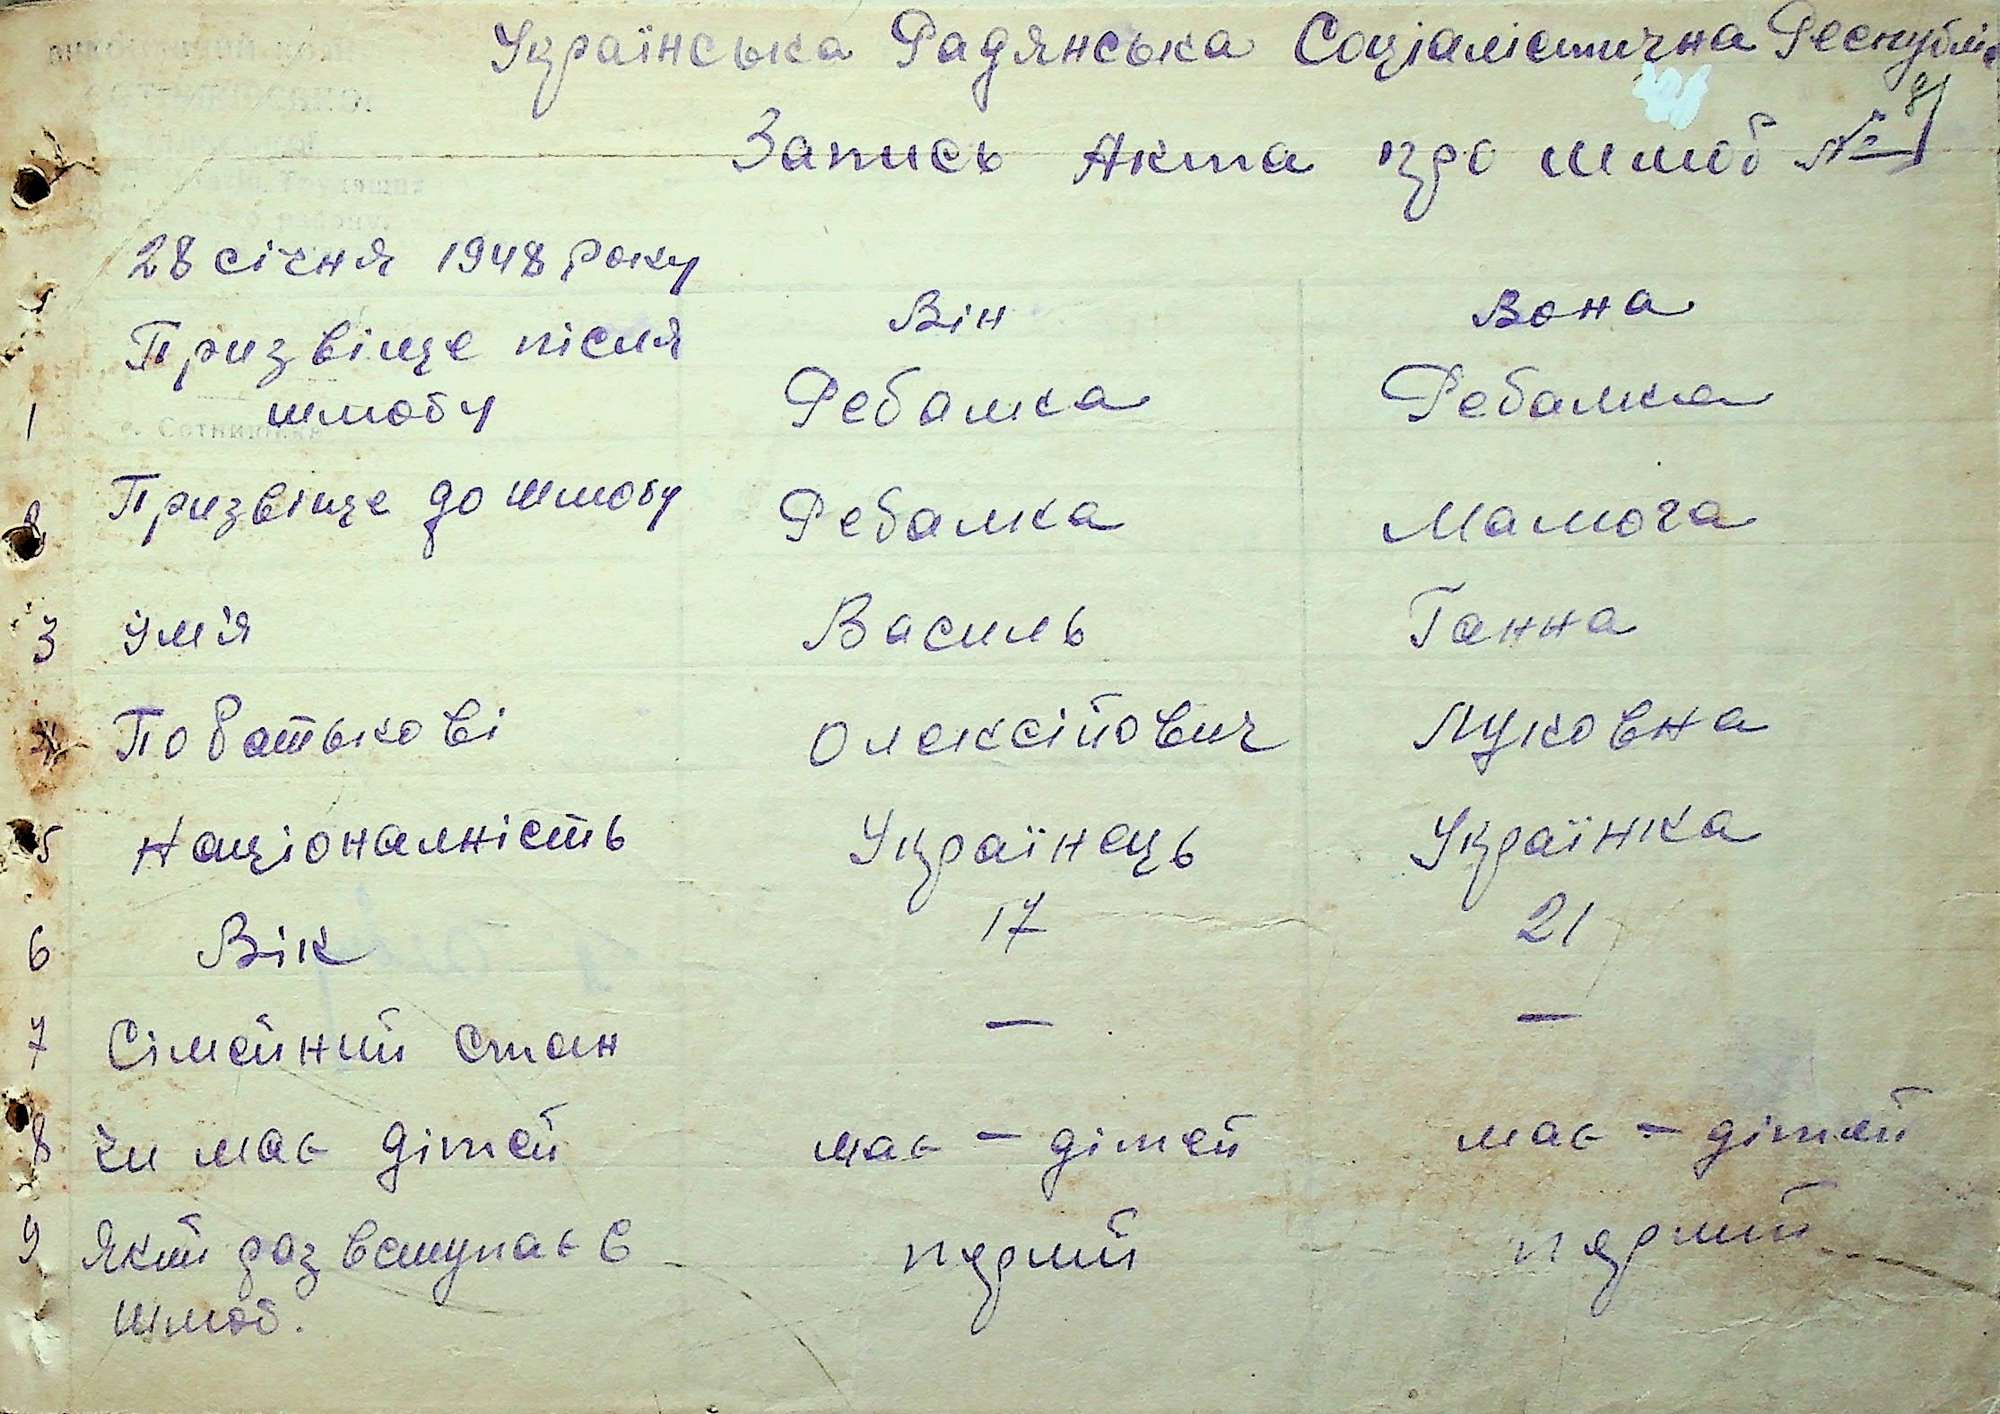 Українська Радянська Соціалістична Республіка
Запись Акта про шлюб №
28 січня 1948 року
Він Вона
Призвіще після
1 шлюбу Ребалка Ребалка
2 Призвіще до шлюбу Ребалка Малюга
3 Імʼя Василь Ганна
4 Побатькові Олексійович Луковна
5 Національність Українець Українка
6 Вік 17 21
7 Сімейний стан — —
8 Чи має дітей має — дітей має — дітей
9 Який раз вступає в перший перший
шлюб.